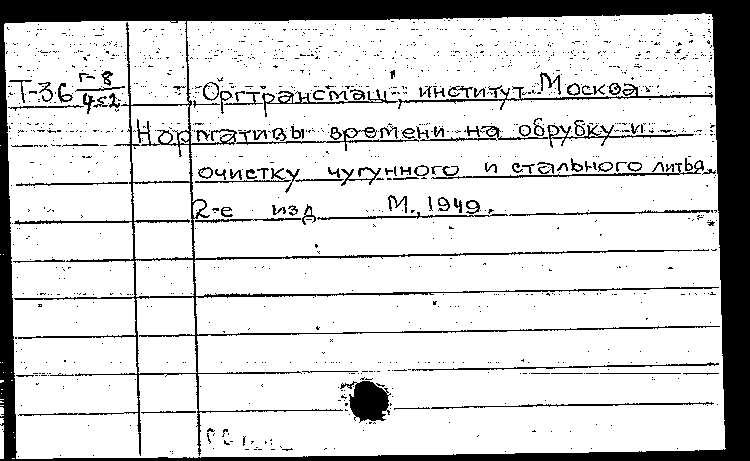 Т-36 Г-8/452 „Оргтрансмаш", институт. Москва
Нормативы времени на обрубку и
очистку чугунного и стального литья.
2-е изд М., 1949.